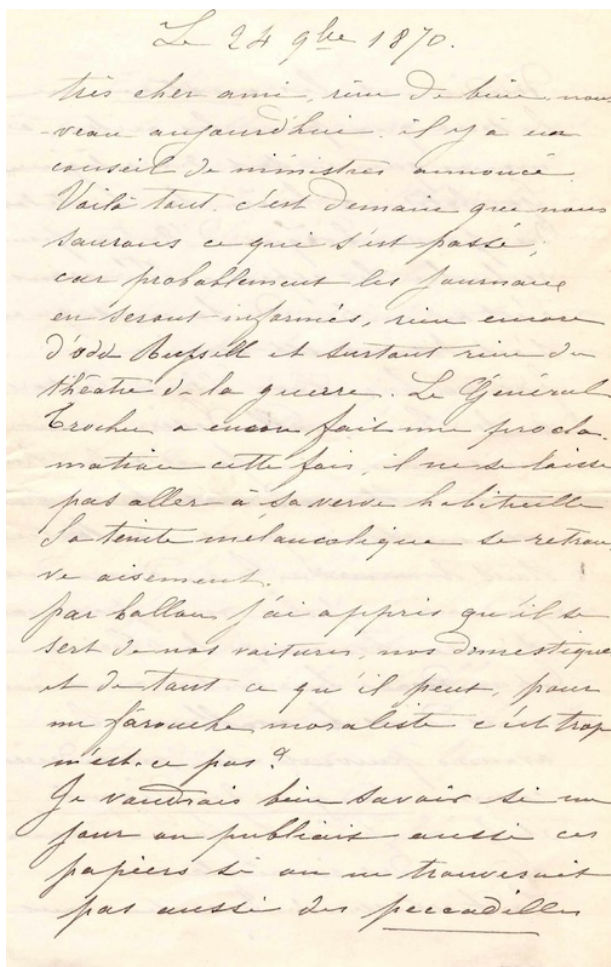 Le 24 9bre 1870.
très cher ami, rien de bien nou
-veau aujourd'hui. il y a un
conseil de ministres annoncé.
Voilà tout. c'est demain que nous
saurons ce qui s'est passé,
car probablement les journaux
en seront informés, rien encore
d'odd Russell et surtout rien du
théatre de la guerre. Le Général
Trochu a encore fait une procla-
mation cette fois, il ne se laisse
pas aller à sa verve habituelle
Sa teinte mélancolique se retrou
ve aisement.
par ballon j'ai appris qu'il se
sert de nos voitures, nos domestiques
et de tout ce qu'il peut, pour
un farouche moraliste c'est trop
n'est-ce pas?
Je voudrais bien savoir si un
jour on publiait aussi ces
papiers si on ne trouverait
pas aussi des peccadilles